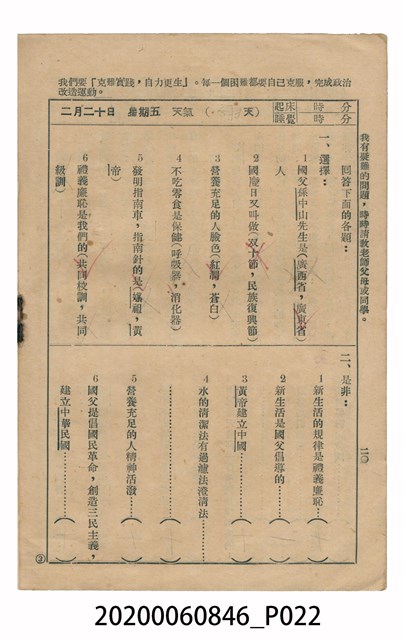 我們要「克難實踐，自力更生」。每一個困難都要自己克服，完成政治
改造運動。
二月二十日　星期五　天氣（　天）　起床　時　分
睡覺　時　分
我有疑難的問題，時時請教老師父母或同學。
二〇
回答下面的各題：
一、選擇：
1 國父孫中山先生是（廣西省，廣東省）
人
2 國慶日又叫做（双十節，民族復興節）
3 營養充足的人臉色（紅潤，蒼白）
4 不吃零食是保健（呼吸器，消化器）
5 發明指南車，指南針的是（嫘祖，黃
帝）
6 禮義廉恥是我們的（共同校訓，共同
級訓）
二、是非：
1 新生活的規律是禮義廉恥…（　）
2 新生活是國父倡導的………（　）
3 黃帝建立中國………………（　）
4 水的清潔法有過濾法澄清法
………………………………（　）
5 營養充足的人精神活潑……（　）
6 國父提倡國民革命，創造三民主義，
建立中華民國………………（　）
③
20200060846_P022